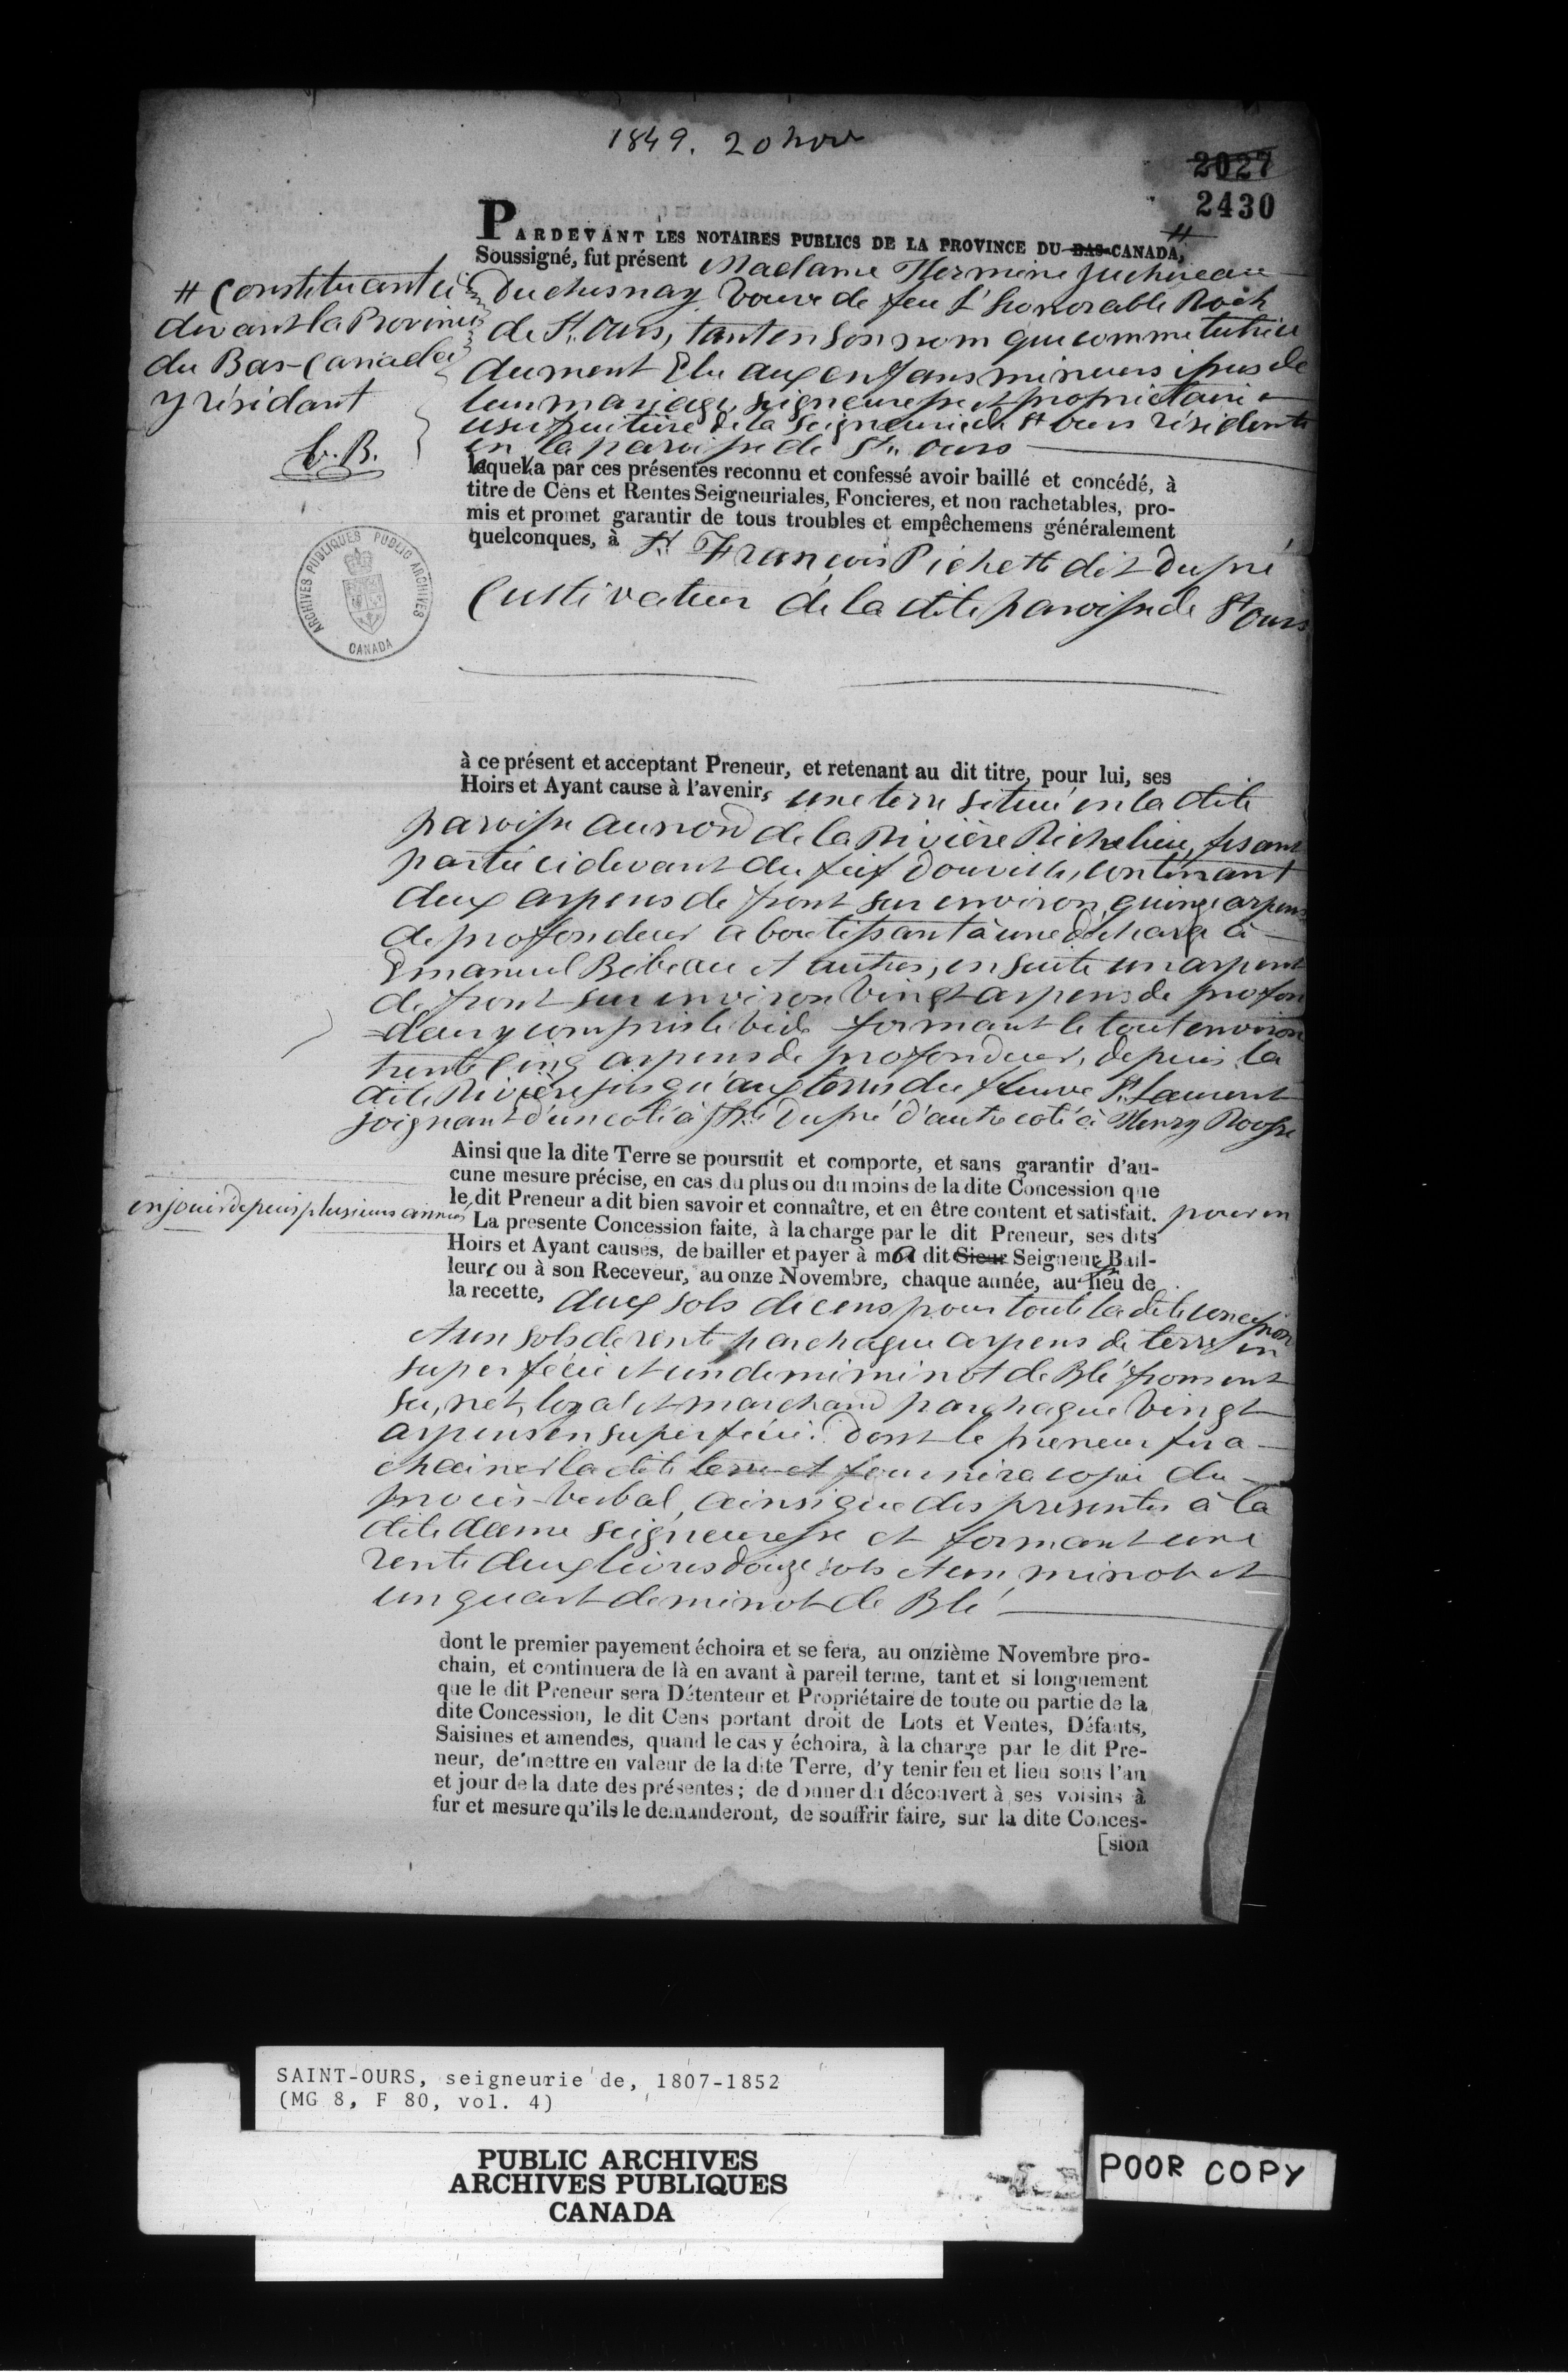 1849. 20 Nov
2027
2430
PARDEVANT LES NOTAIRES PUBLICS DE LA PROVINCE DU BAS-CANADA, #
Soussigné, fut présent Madame Hermine Juchereau
Duchesnay Veuve de feu L'honorable Roch
de St. Ours, tant en son nom que comme tutrice
dument Elue aux enfans mineurs issus de
leur mariage, seigneuresse et propriétaire
usufruitière de la Seigneurie de St Ours résidente
en la paroisse de St. Ours
# Constituant ci
devant la Province
du Bas-Canada
y résidant
C. B.
laquelle a par ces présentes reconnu et confessé avoir baillé et concédé, à
titre de Cens et Rentes Seigneuriales, Foncieres, et non rachetables, pro-
mis et promet garantir de tous troubles et empêchemens généralement
quelconques, à Sr. François Pichette dit Dupré
Cultivateur de la dite paroisse de St Ours
ARCHIVES PUBLIQUES PUBLIC ARCHIVES
CANADA
à ce présent et acceptant Preneur, et retenant au dit titre, pour lui, ses
Hoirs et Ayant cause à l'avenir, une terre située en la dite
paroisse au nord de la Rivière Richelieu, fesant
partie cidevant du fief Douville, contenant
deux arpens de front sur environ quinze arpens
de profondeur aboutissant à une décharge à
Emanuel Bibeau et autres, ensuite un arpent
de front sur environ vingt arpens de profon
=deur y compris le vide formant le tout environ
trente cinq arpens de profondeur, depuis la
dite Rivière jusqu'aux terres du fleuve St. Laurent
joignant d'un coté à Dupré d'autre coté à Henry
Ainsi que la dite Terre se poursuit et comporte, et sans garantir d'au-
cune mesure précise, en cas du plus ou du moins de la dite Concession que
le dit Preneur a dit bien savoir et connaître, et en être content et satisfait. pour en
en jouir depuis plusieurs années
La presente Concession faite, à la charge par le dit Preneur, ses dits
Hoirs et Ayant causes, de bailler et payer à ma dit Sieur Seigneur Bail-
leur, ou à son Receveur, au onze Novembre, chaque année, au lieu de
la recette, deux sols de cens pour toute la dite concession
et un sols de rente par chaque arpens de terre en
superfécie et un demi minot de Blé froment
sec, net, loyal et marchand par chaque vingt
arpens en superfécie. Dont le preneur fera
chainer la dite terre et fournira copie du
procès-verbal, ainsi que des presentes à la
dite dame seigneuresse et formant une
rente deux livres douze sols et un minot et
un quart de minot de Blé
dont le premier payement échoira et se fera, au onzième Novembre pro-
chain, et continuera de là en avant à pareil terme, tant et si longuement
que le dit Preneur sera Détenteur et Propriétaire de toute ou partie de la
dite Concession, le dit Cens portant droit de Lots et Ventes, Défauts,
Saisines et amendes, quand le cas y échoira, à la charge par le dit Pre-
neur, de mettre en valeur de la dite Terre, d'y tenir feu et lieu sous l'an
et jour de la date des présentes; de donner du découvert à ses voisins à
fur et mesure qu'ils le demanderont, de souffrir faire, sur la dite Conces-
[sion
SAINT-OURS, seigneurie de, 1807-1852
(MG 8, F 80, vol. 4)
PUBLIC ARCHIVES
ARCHIVES PUBLIQUES
CANADA
POOR COPY